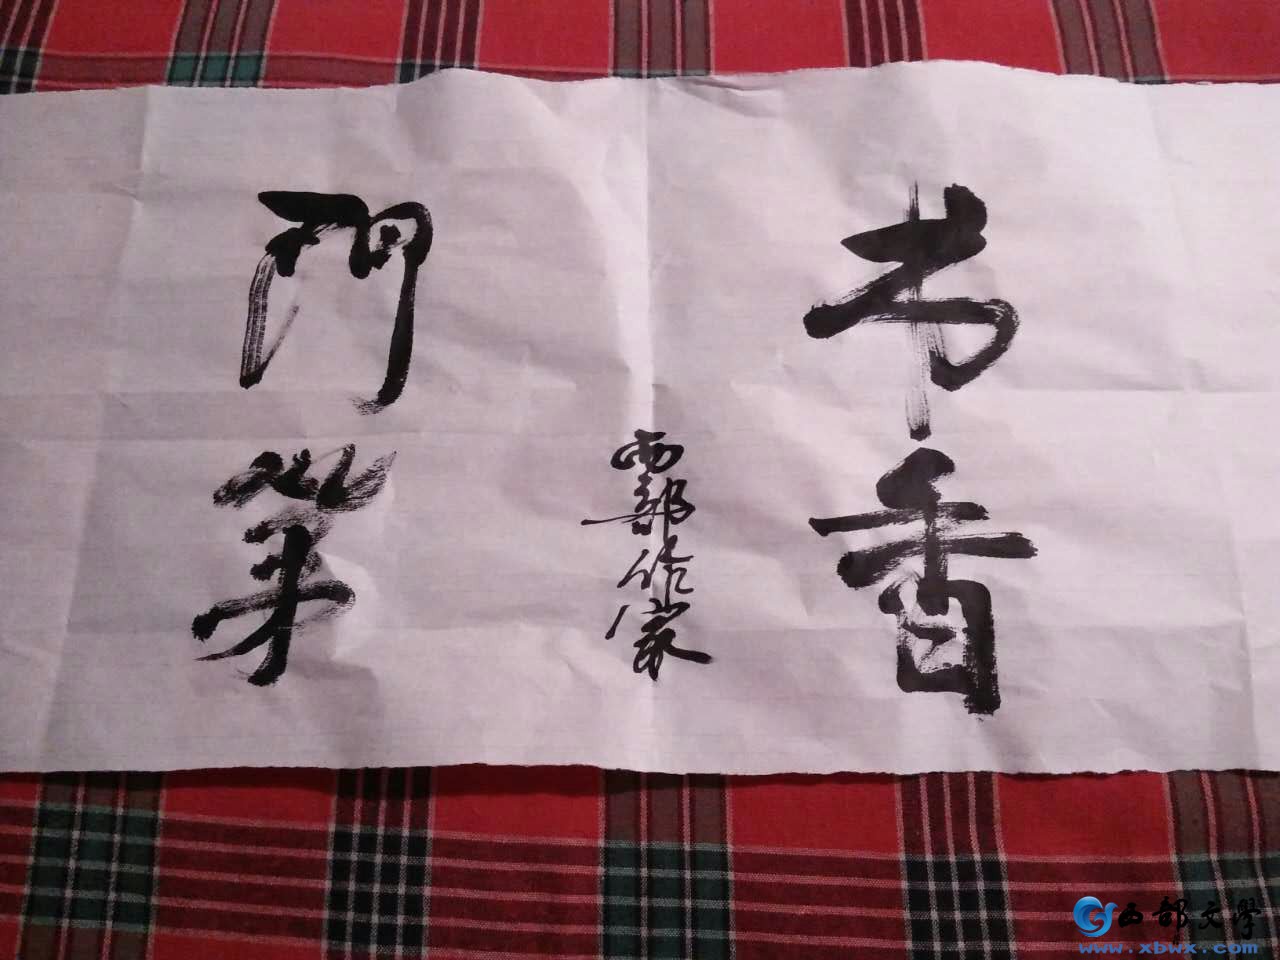 书香
西部作家
門第
西部文學
www.xbwx.com